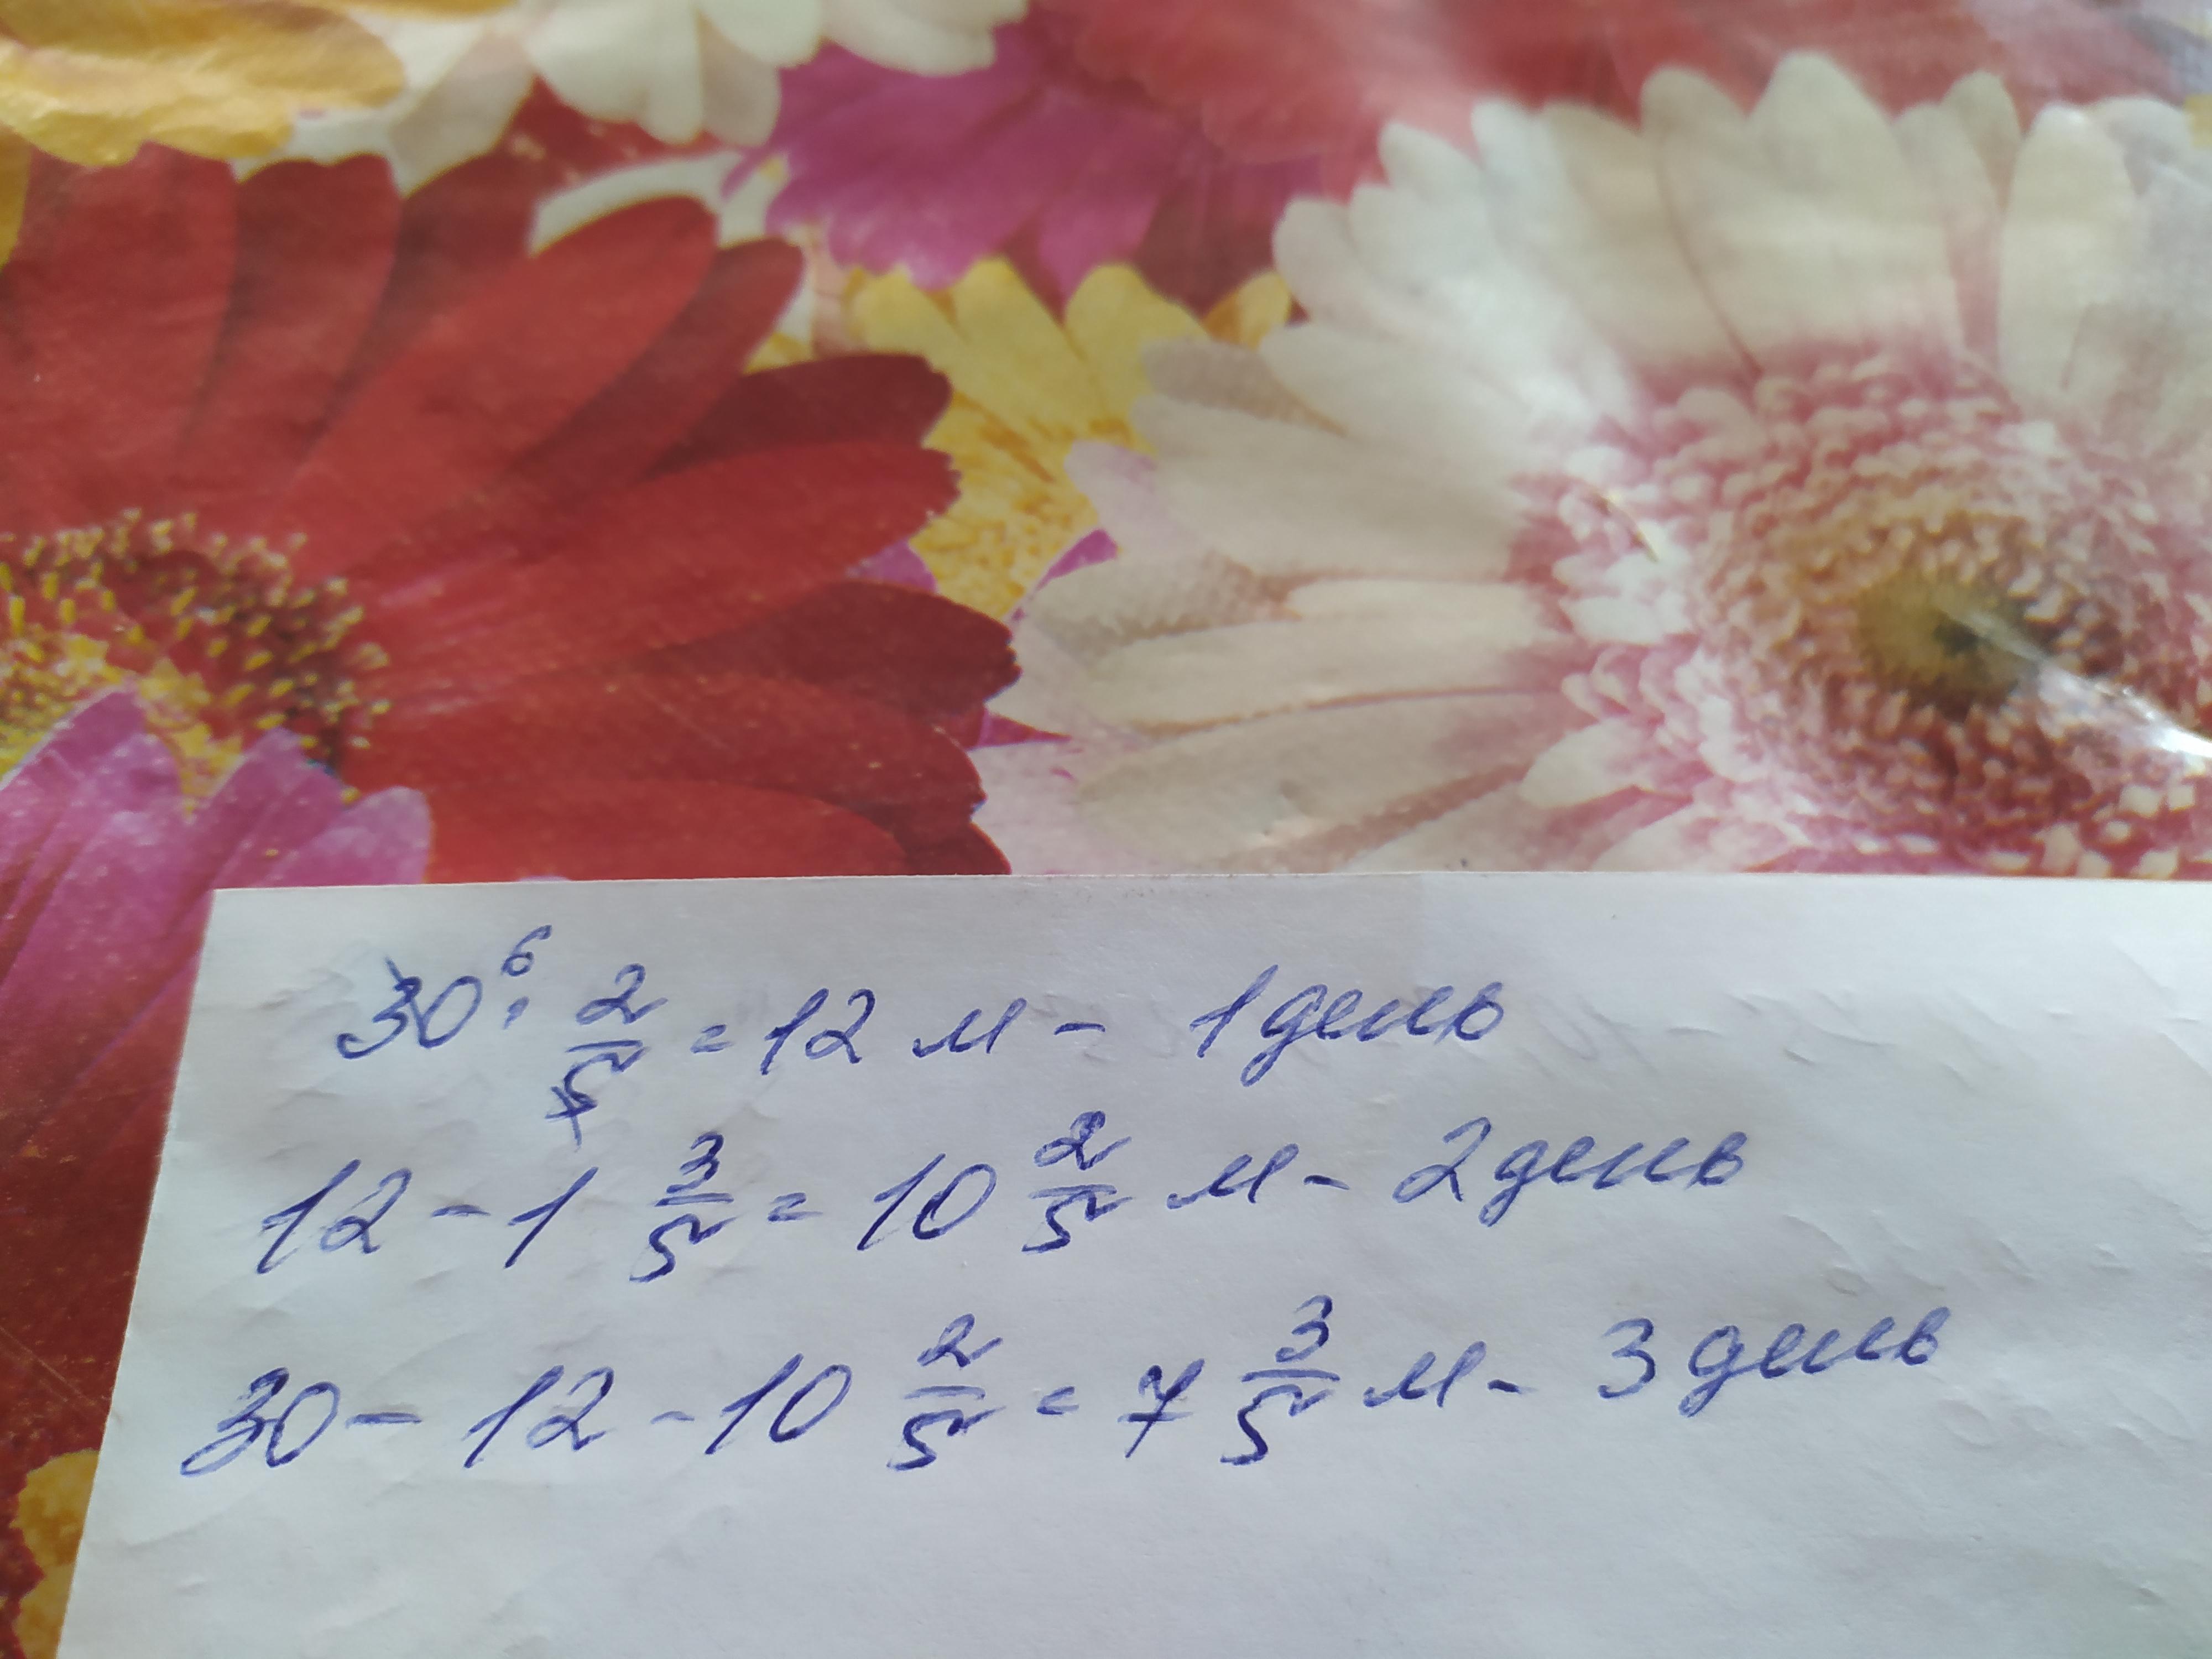 30⁶ · 2/5 = 12 м - 1 день
12 - 1 3/5 = 10 2/5 м - 2 день
30 - 12 - 10 2/5 = 7 3/5 м - 3 день